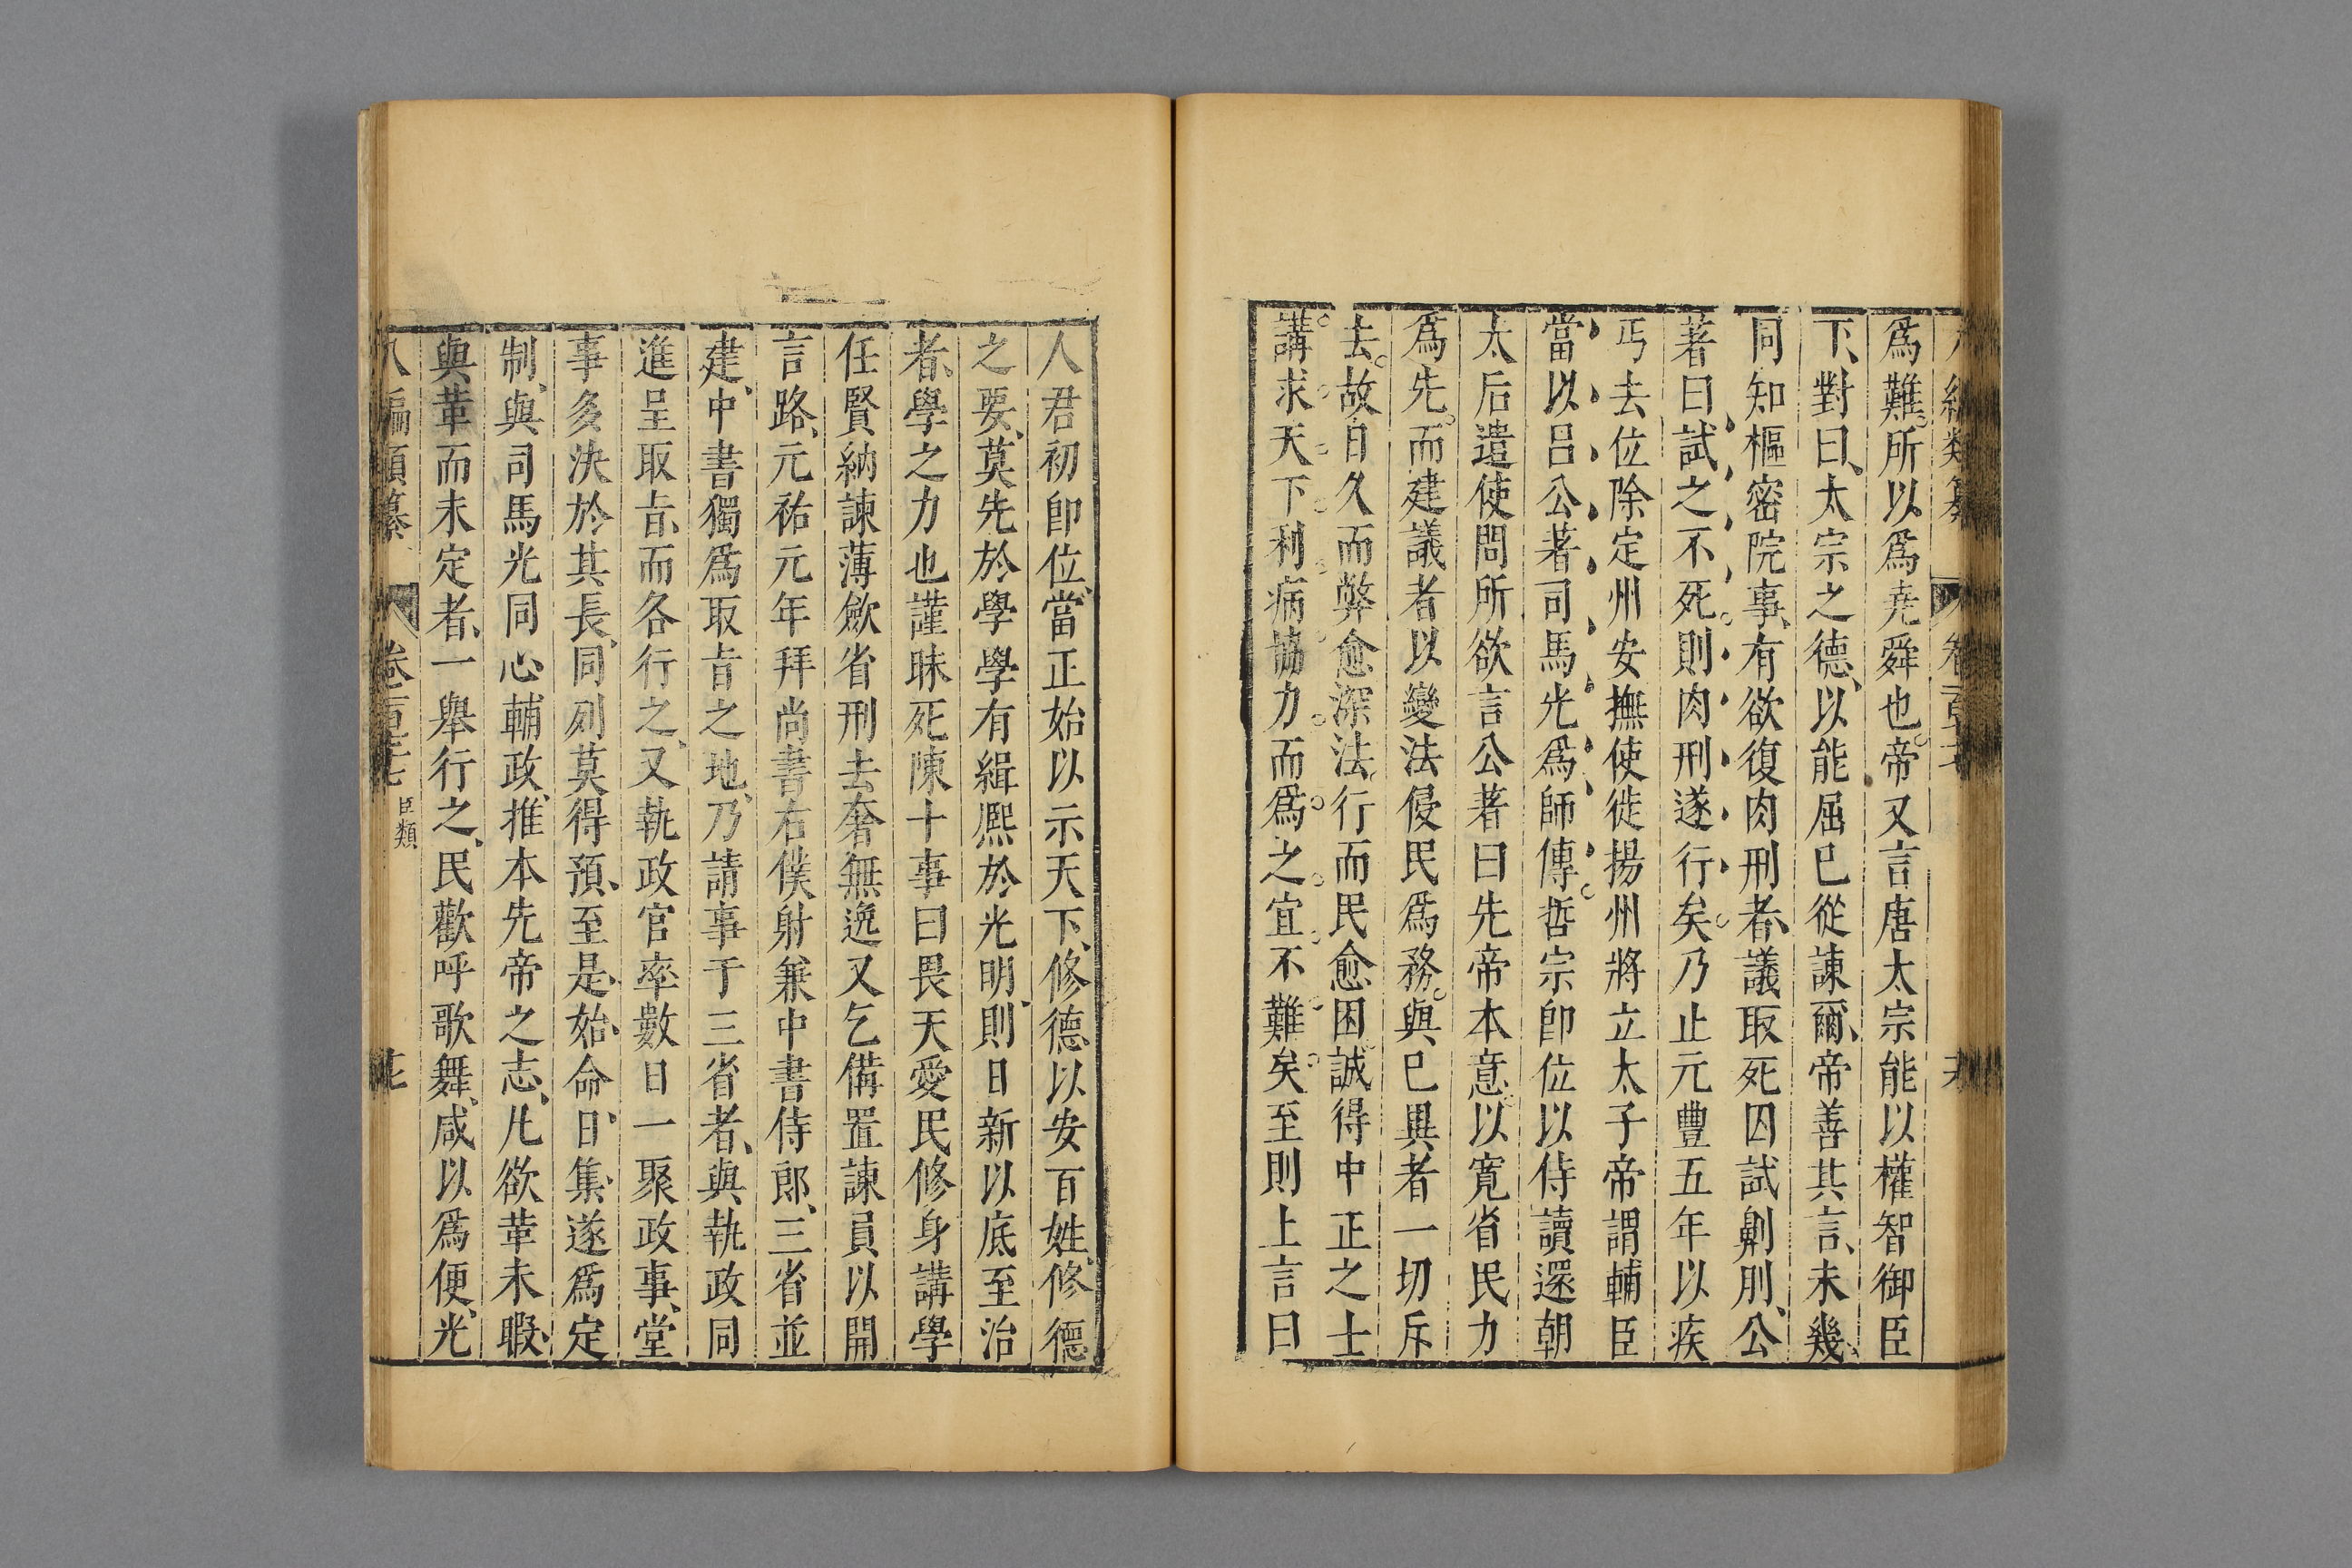 爲難所以爲堯舜也帝又言唐太宗能以權智御臣
下對曰太宗之德以能屈已從諫爾帝善其言未幾
同知樞密院事有欲復肉刑者議取死囚試劓刖公
著曰試之不死則肉刑遂行矣乃止元豐五年以疾
丐去位除定州安撫使徙揚州將立太子帝謂輔臣
當以呂公著司馬光爲師傅哲宗卽位以侍讀還朝
太后遣使問所欲言公著曰先帝本意以寬省民力
爲先而建議者以變法侵民爲務與已異者一切斥
去故日久而弊愈深法行而民愈困誠得中正之士
講求天下利病協力而爲之宜不難矣至則上言曰
人君初卽位當正始以示天下修德以安百姓修德
之要莫先於學學有緝熈於光明則日新以底至治
者學之力也謹昧死陳十事曰畏天愛民修身講學
任賢納諫薄斂省刑去奢無逸又乞備置諫員以開
言路元祐元年拜尚書右僕射兼中書侍郎三省並
建中書獨爲取旨之地乃請事于三省者與執政同
進呈取旨而各行之又執政官率數日一聚政事堂
事多決於其長同列莫得預至是始命日集遂爲定
制與司馬光同心輔政推本先帝之志凡欲革未暇
與革而未定者一舉行之民歡呼歌舞咸以爲便光
八編類纂 卷一百三七 臣類